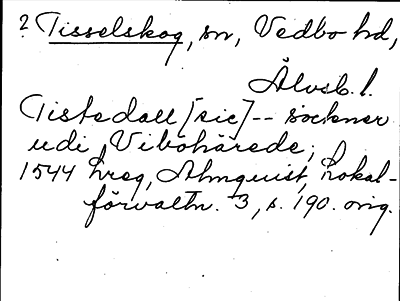 ? Tisselskog, sn, Vedbo hd,
Älvsb. l.
Tistedall [sic] -- sockner
udi Vibohärede;
1544 hreg, Almquist, Lokal-
förvaltn. 3, s. 190. orig.